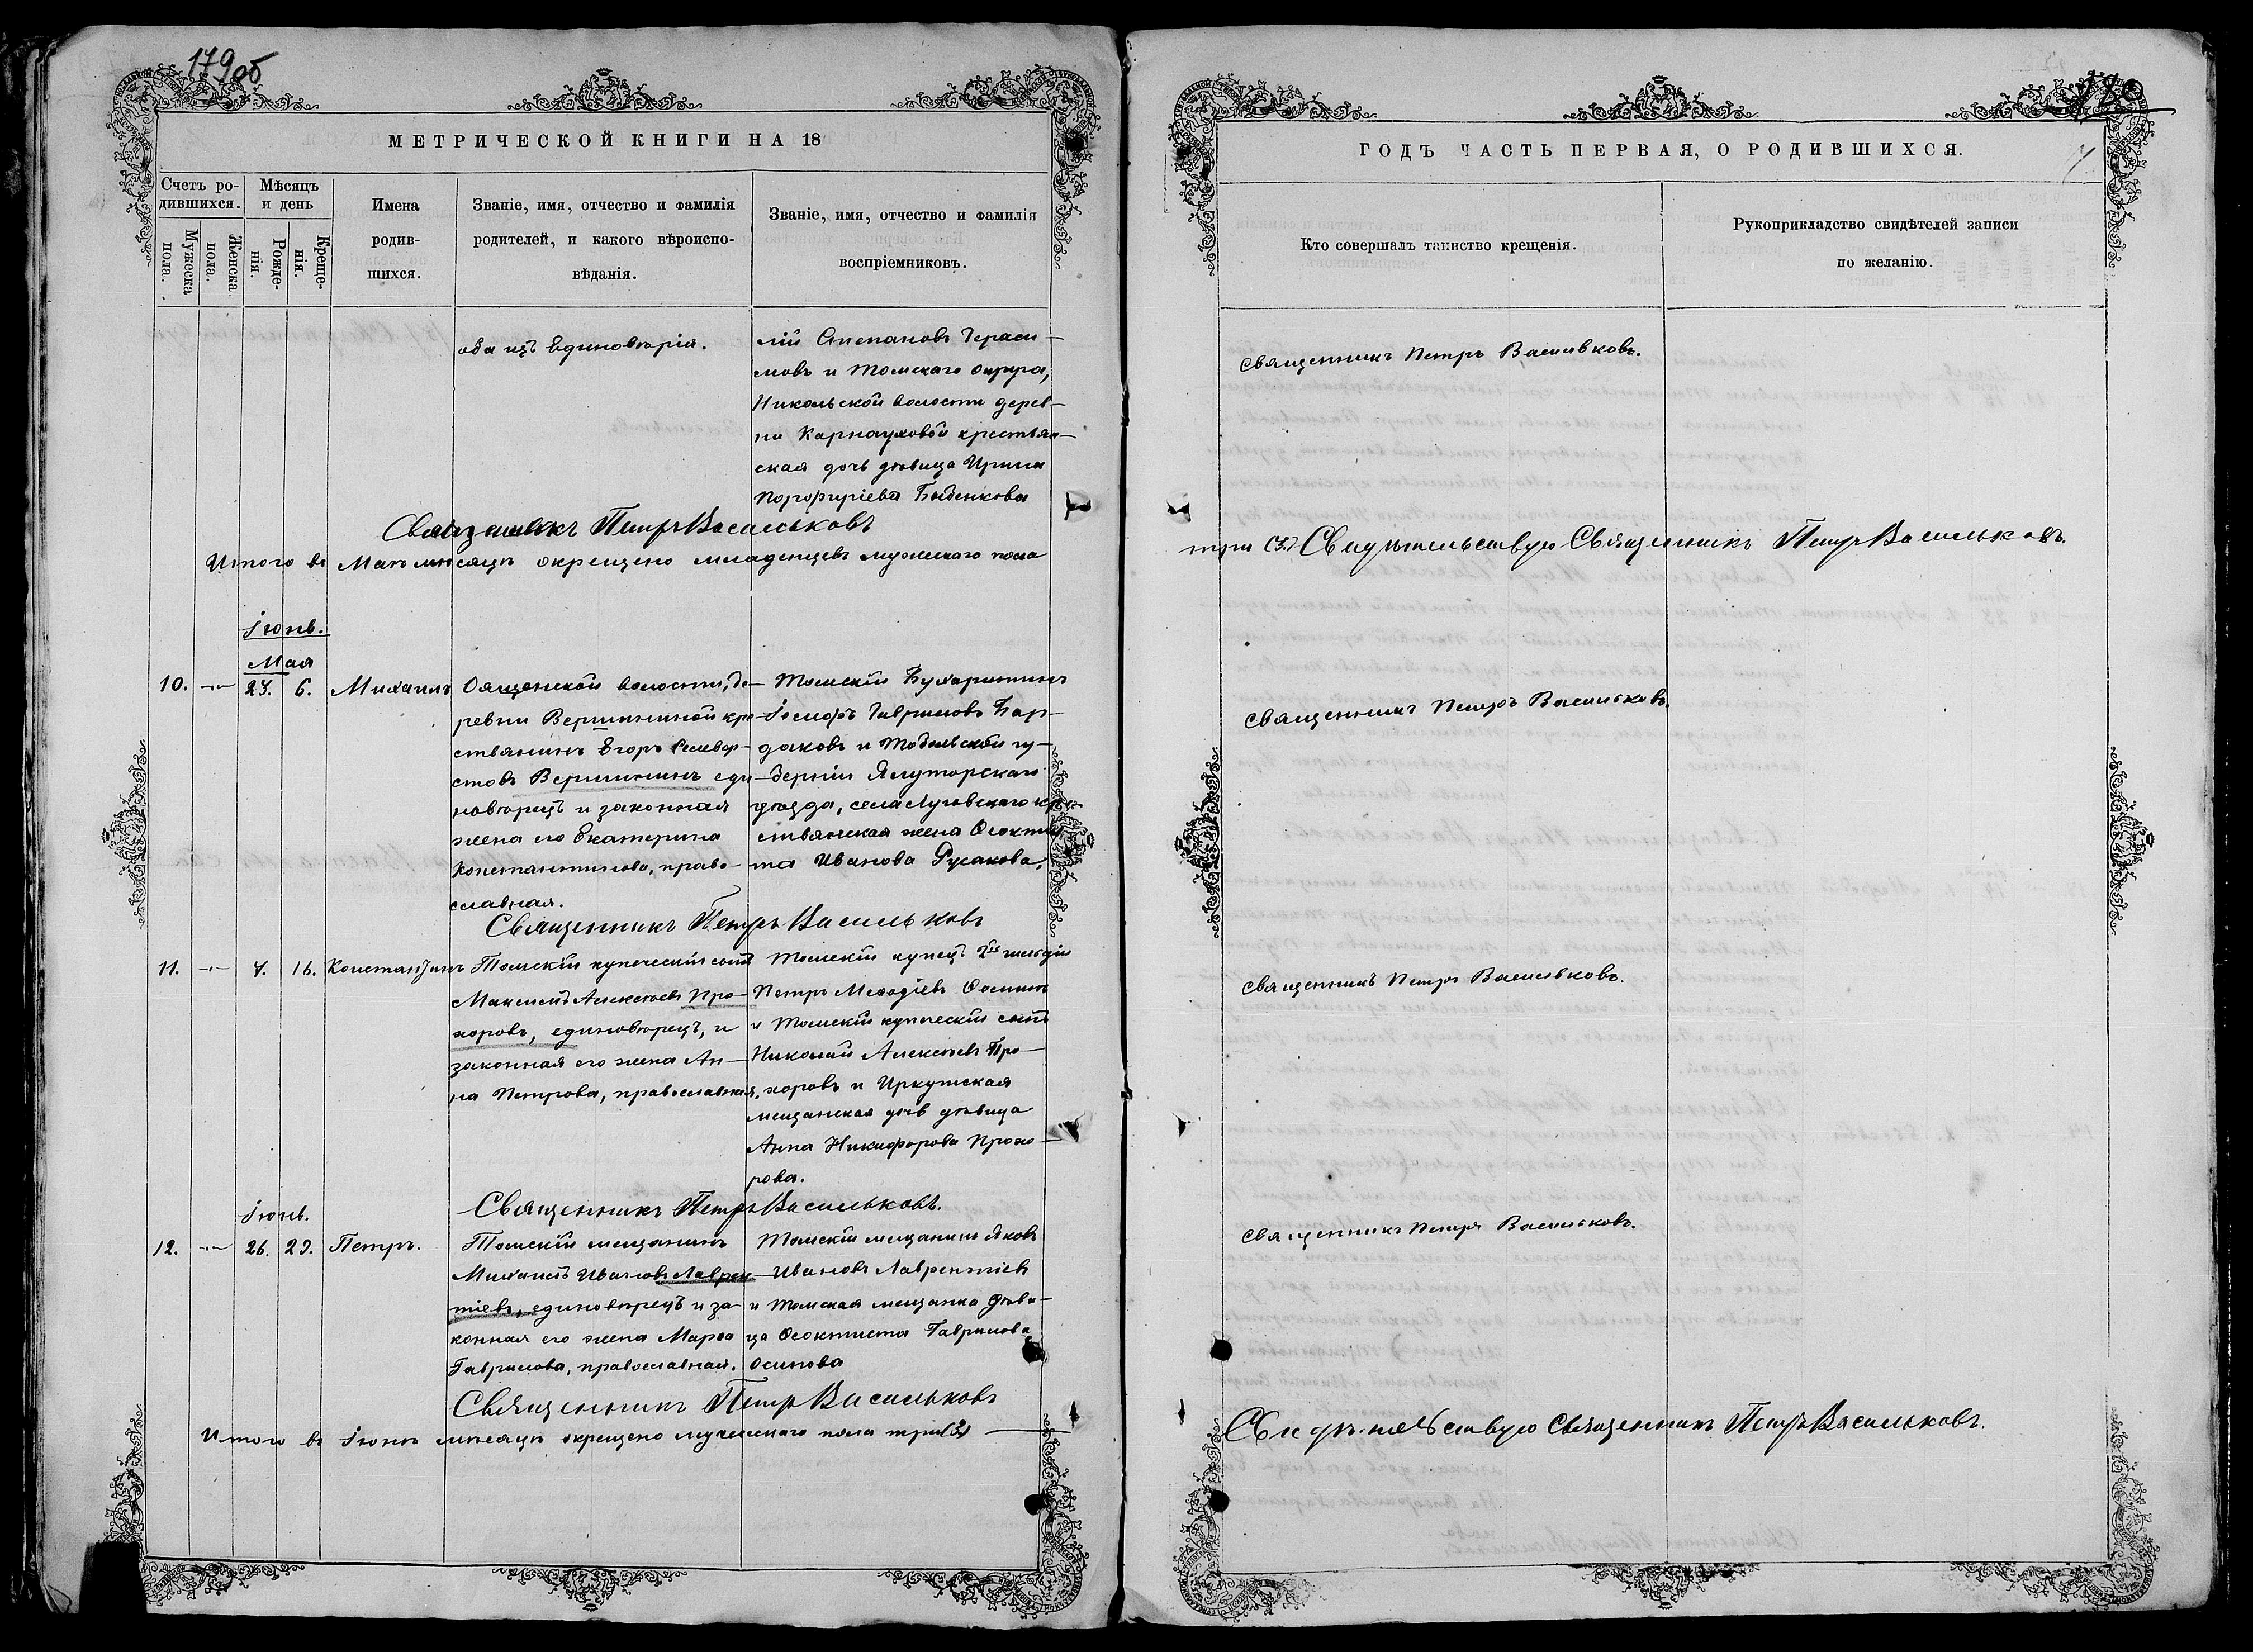 179об
МЕТРИЧЕСКОЙ КНИГИ НА 18
Счетъ ро-
дившихся.
Мужеска
пола.
Женска
пола.
Мѣсяцъ
и день
Рожде-
нія.
Креще-
нія.
Имена
родив-
шихся.
Званіе, имя, отчество и фамилія
родителей, и какого вѣроиспо-
вѣданія.
Званіе, имя, отчество и фамилія
воспріемниковъ.
оба изъ Единовѣрія.
лій Степановъ Гераси-
мовъ и Томскаго округа,
Никольской волости дерев-
ни Карнауховой крестьян-
ская дочь дѣвица Ирина
Порфиріева Быденкова
Священникъ Петръ Васильковъ
Итого въ Маѣ мѣсяцѣ окрещено младенцевъ мужескаго пола
Іюнь.
Мая
10. -"- 6. Михаилъ
Ояшенской волости, де-
ревни Вершининой кре-
стьянинъ Егоръ Селивер-
стовъ Вершининъ еди
новѣрецъ и законная
жена его Екатерина
Константинова, право-
славная.
Томскій Бухаритинъ
Іосифъ Гавриловъ Бар-
даковъ и Тобольской гу-
берніи Ялуторскаго
уѣзда, села Луговскаго кре
стьянская жена Ѳеокти
та Иванова Русакова.
Священникъ Петръ Васильковъ
11. -"- 16. Константинъ
Томскій купеческій сынъ
Максимъ Алексѣевъ Про-
хоровъ, единовѣрецъ, и
законная его жена Ан-
на Петрова, православная.
Томскій купецъ 2й гильдіи
Петръ Меѳодіевъ Ѳоминъ
и Томскій купеческій сынъ
Николай Алексѣевъ Про-
хоровъ и Иркутская
мещанская дочь дѣвица
Анна Никифорова Прохо-
рова.
Священникъ Петръ Васильковъ.
Іюнь.
12. -"- 26. 29. Петръ.
Томскій мещанинъ
Михаилъ Ивановъ Лаврен-
тіевъ, единовѣрецъ и за-
конная его жена Марѳа
Гаврилова, православная.
Томскій мещанинъ Яковъ
Ивановъ Лаврентіевъ
и Томская мещанка дѣви-
ца Ѳеоктиста Гаврилова
Осипова
Священникъ Петръ Васильковъ
Итого въ Іюнѣ мѣсяцѣ окрещено мужескаго пола три (3)
180
ГОДЪ ЧАСТЬ ПЕРВАЯ, О РОДИВШИХСЯ.
Кто совершалъ таинство крещенія.
Рукоприкладство свидѣтелей записи
по желанію.
Священникъ Петръ Васильковъ.
три (3.) Свидѣтельствую Священникъ Петръ Васильковъ.
Священникъ Петръ Васильковъ.
Священникъ Петръ Васильковъ.
Священникъ Петръ Васильковъ.
Свидѣтельствую Священникъ Петръ Васильковъ.